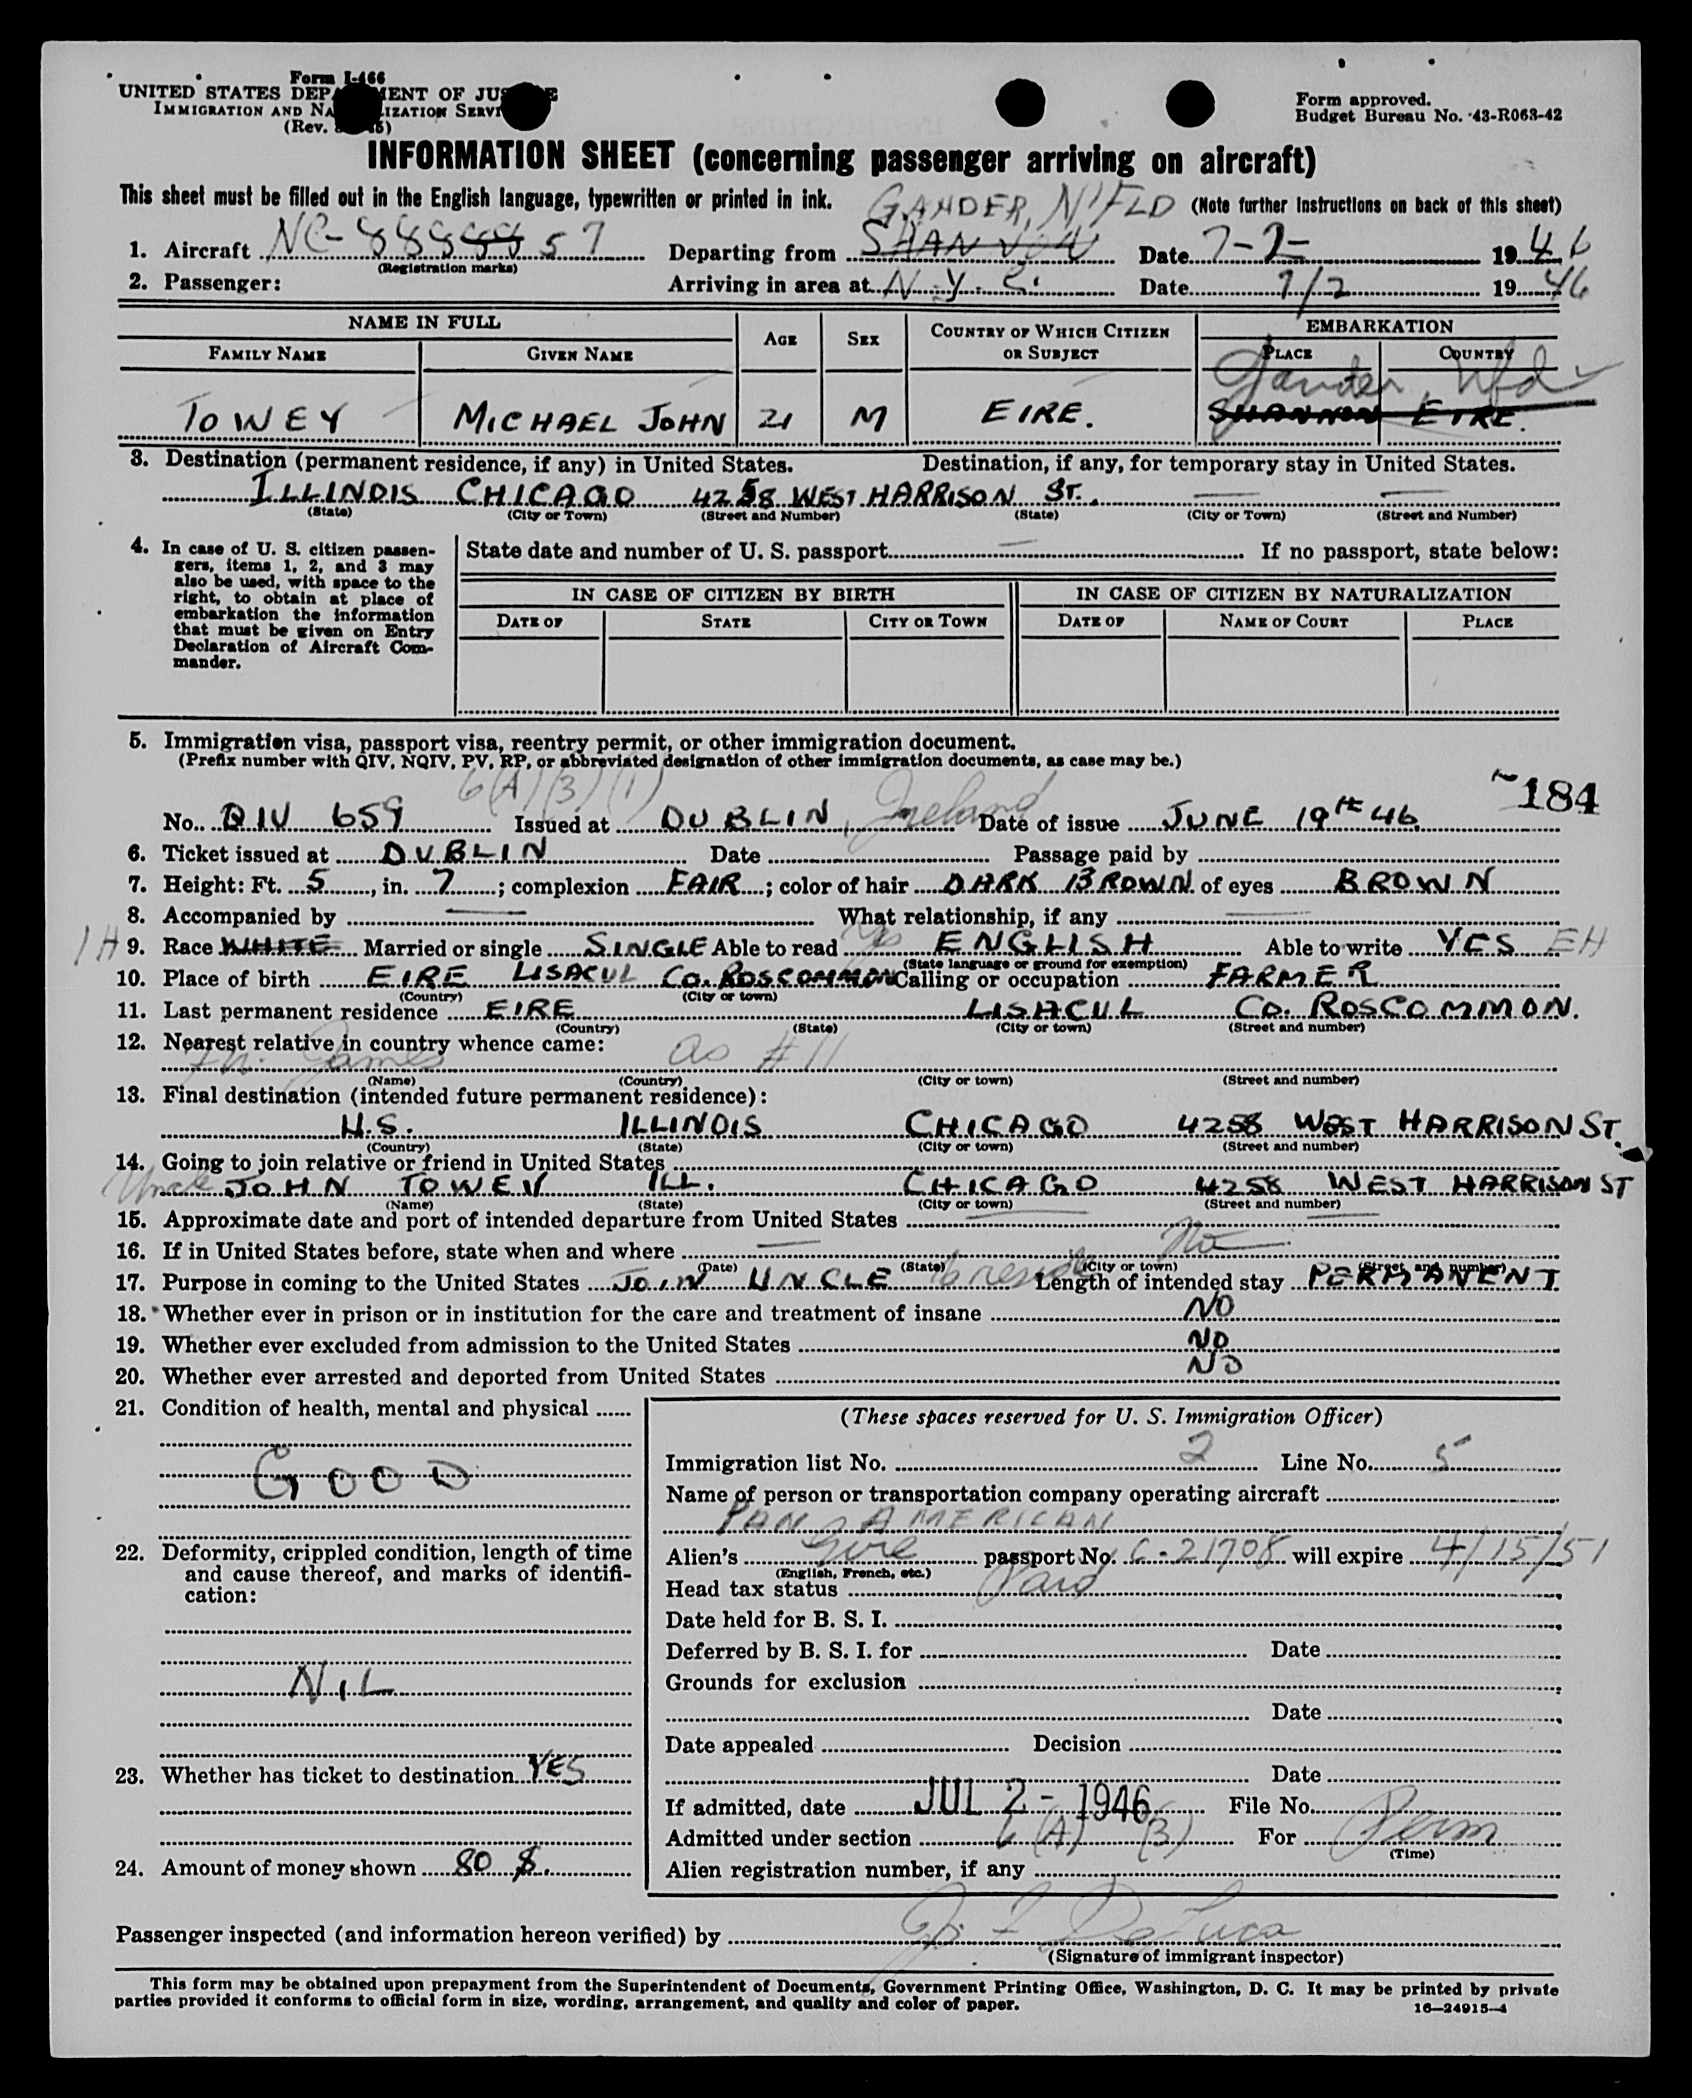 Form I-466
UNITED STATES DEPARTMENT OF JUSTICE
IMMIGRATION AND NATURALIZATION SERVICE
(Rev.
Form approved.
Budget Bureau No. 43-R063-42
INFORMATION SHEET (concerning passenger arriving on aircraft)
This sheet must be filled out in the English language, typewritten or printed in ink. (Note further instructions on back of this sheet)
GANDER, N'FLD
1. Aircraft NC-88888 57 (Registration marks) Departing from SHANNON Date 7-2- 1946
2. Passenger: Arriving in area at N.Y.C. Date 7/2 1946
NAME IN FULL AGE SEX COUNTRY OF WHICH CITIZEN OR SUBJECT EMBARKATION
FAMILY NAME GIVEN NAME PLACE COUNTRY
Gander, Nfd
TOWEY MICHAEL JOHN 21 M EIRE. SHANNON EIRE.
3. Destination (permanent residence, if any) in United States. Destination, if any, for temporary stay in United States.
ILLINOIS CHICAGO 4258 WEST HARRISON ST. — —
(State) (City or Town) (Street and Number) (State) (City or Town) (Street and Number)
4. In case of U. S. citizen passengers, items 1, 2, and 3 may also be used, with space to the right, to obtain at place of embarkation the information that must be given on Entry Declaration of Aircraft Commander.
State date and number of U. S. passport — If no passport, state below:
IN CASE OF CITIZEN BY BIRTH IN CASE OF CITIZEN BY NATURALIZATION
DATE OF STATE CITY OR TOWN DATE OF NAME OF COURT PLACE
5. Immigration visa, passport visa, reentry permit, or other immigration document.
(Prefix number with QIV, NQIV, PV, RP, or abbreviated designation of other immigration documents, as case may be.)
6(A)(3)(1)
184
No. QIV 659 Issued at DUBLIN, Ireland Date of issue JUNE 19th 46
6. Ticket issued at DUBLIN Date Passage paid by
7. Height: Ft. 5, in. 7; complexion FAIR; color of hair DARK BROWN of eyes BROWN
8. Accompanied by — What relationship, if any —
1H 9. Race WHITE Married or single SINGLE Able to read Yes ENGLISH Able to write YES EH
(State language or ground for exemption)
10. Place of birth EIRE LISACUL CO. ROSCOMMON Calling or occupation FARMER
(Country) (City or town)
11. Last permanent residence EIRE LISACUL CO. ROSCOMMON.
(Country) (State) (City or town) (Street and number)
12. Nearest relative in country whence came:
Fr. James as #11
(Name) (Country) (City or town) (Street and number)
13. Final destination (intended future permanent residence):
U.S. ILLINOIS CHICAGO 4258 WEST HARRISON ST.
(Country) (State) (City or town) (Street and number)
14. Going to join relative or friend in United States
Uncle JOHN TOWEY ILL. CHICAGO 4258 WEST HARRISON ST
(Name) (State) (City or town) (Street and number)
15. Approximate date and port of intended departure from United States — —
16. If in United States before, state when and where — No
(Date) (State) (City or town) (Street and number)
17. Purpose in coming to the United States JOIN UNCLE to reside Length of intended stay PERMANENT
18. Whether ever in prison or in institution for the care and treatment of insane NO
19. Whether ever excluded from admission to the United States NO
20. Whether ever arrested and deported from United States NO
21. Condition of health, mental and physical
GOOD
22. Deformity, crippled condition, length of time and cause thereof, and marks of identification:
NIL
23. Whether has ticket to destination YES
24. Amount of money shown 80 $.
(These spaces reserved for U. S. Immigration Officer)
Immigration list No. 2 Line No. 5
Name of person or transportation company operating aircraft
PAN AMERICAN
Alien's Eire passport No. C-21708 will expire 4/15/51
(English, French, etc.)
Head tax status Paid
Date held for B. S. I.
Deferred by B. S. I. for Date
Grounds for exclusion
Date
Date appealed Decision
Date
If admitted, date JUL 2 - 1946 File No.
Admitted under section 6(A)(3) For Perm
(Time)
Alien registration number, if any
Passenger inspected (and information hereon verified) by De Luca
(Signature of immigrant inspector)
This form may be obtained upon prepayment from the Superintendent of Documents, Government Printing Office, Washington, D. C. It may be printed by private
parties provided it conforms to official form in size, wording, arrangement, and quality and color of paper.
16—24915-4